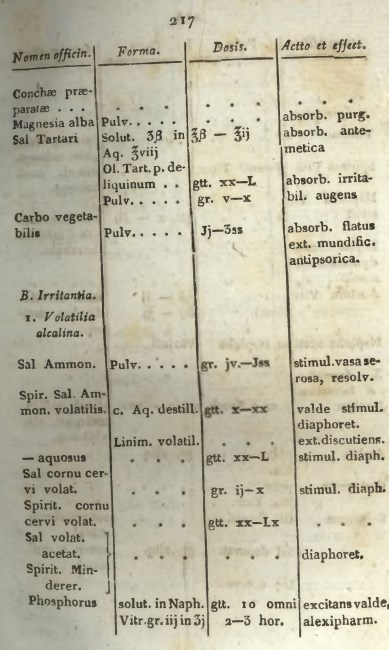 217
Nomen officin. Forma. Dosis. Actto et effect.
Conchæ præ-
paratæ . . . . . . . . . . . .
Magnesia alba Pulv. . . . . . . . absorb. purg.
Sal Tartari Solut. ʒβ in ℥β — ℥ij absorb. ante-
Aq. ℥viij metica
Ol. Tart. p. de-
liquinum . . gtt. xx—L absorb. irrita-
Pulv. . . . . gr. v—x bil. augens
Carbo vegeta-
bilis Pulv. . . . . Jj—ʒss absorb. flatus
ext. mundific.
antipsorica.
B. Irritantia.
1. Volatilia
alcalina.
Sal Ammon. Pulv. . . . . gr. jv.—Jss stimul. vasa se-
rosa, resolv.
Spir. Sal. Am-
mon. volatilis. c. Aq. destill. gtt. x—xx valde stimul.
diaphoret.
Linim. volatil. . . . ext. discutiens.
— aquosus . . . gtt. xx—L stimul. diaph.
Sal cornu cer-
vi volat. . . . gr. ij—x stimul. diaph.
Spirit. cornu
cervi volat. . . . gtt. xx—Lx . . .
Sal volat.
acetat. . . . . . . diaphoret.
Spirit. Min-
derer.
Phosphorus solut. in Naph. gtt. 10 omni excitans valde,
Vitr. gr. iij in ʒj 2—3 hor. alexipharm.